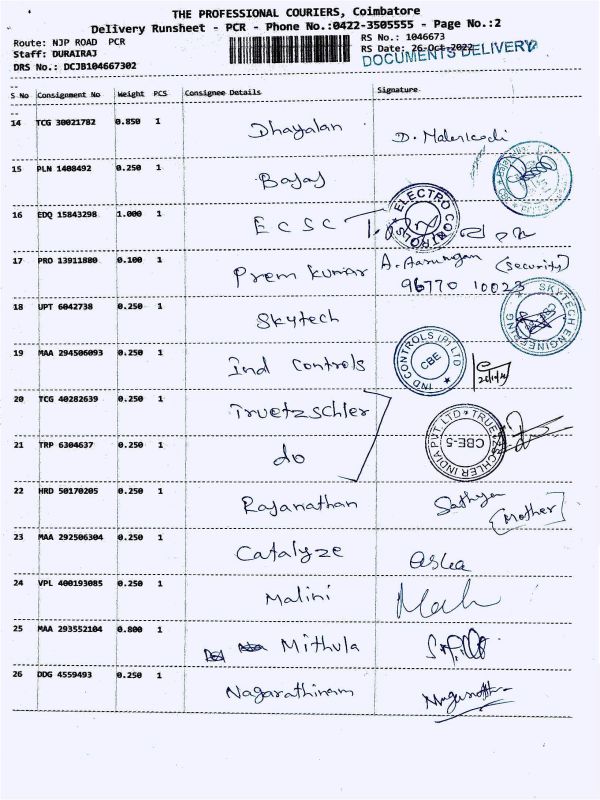 THE PROFESSIONAL COURIERS, Coimbatore
Delivery Runsheet - PCR - Phone No.:0422-3505555 - Page No.:2
Route: NJP ROAD PCR
RS No.: 1046673
Staff: DURAIRAJ
RS Date: 26-Oct-2022
DOCUMENTS DELIVERY
DRS No.: DCJB104667302
S No Consignment No Weight PCS Consignee Details Signature
14 TCG 30021782 0.850 1 Dhayalan
15 PLN 1408492 0.250 1 Bajaj
16 EDQ 15843298 1.000 1 ECSC
ELECTRO CONTROLS
17 PRO 13911880 0.100 1 Prem kumar A. Aarungan (Security)
96770 10023
18 UPT 6042738 0.250 1 Skytech
SKYTECH ENGINEERING
19 MAA 294506093 0.250 1 Ind Controls
IND CONTROLS (P) LTD
CBE
20 TCG 40282639 0.250 1 Truetzschler
TRUETZSCHLER INDIA PVT. LTD
CBE-5
21 TRP 6304637 0.250 1 do
22 HRD 50170205 0.250 1 Rajanathan Sathya
[Mother]
23 MAA 292506304 0.250 1 Catalyze Aslea
24 VPL 400193085 0.250 1 Malini
25 MAA 293552104 0.800 1 Mithula
26 DDG 4559493 0.250 1 Nagarathinam